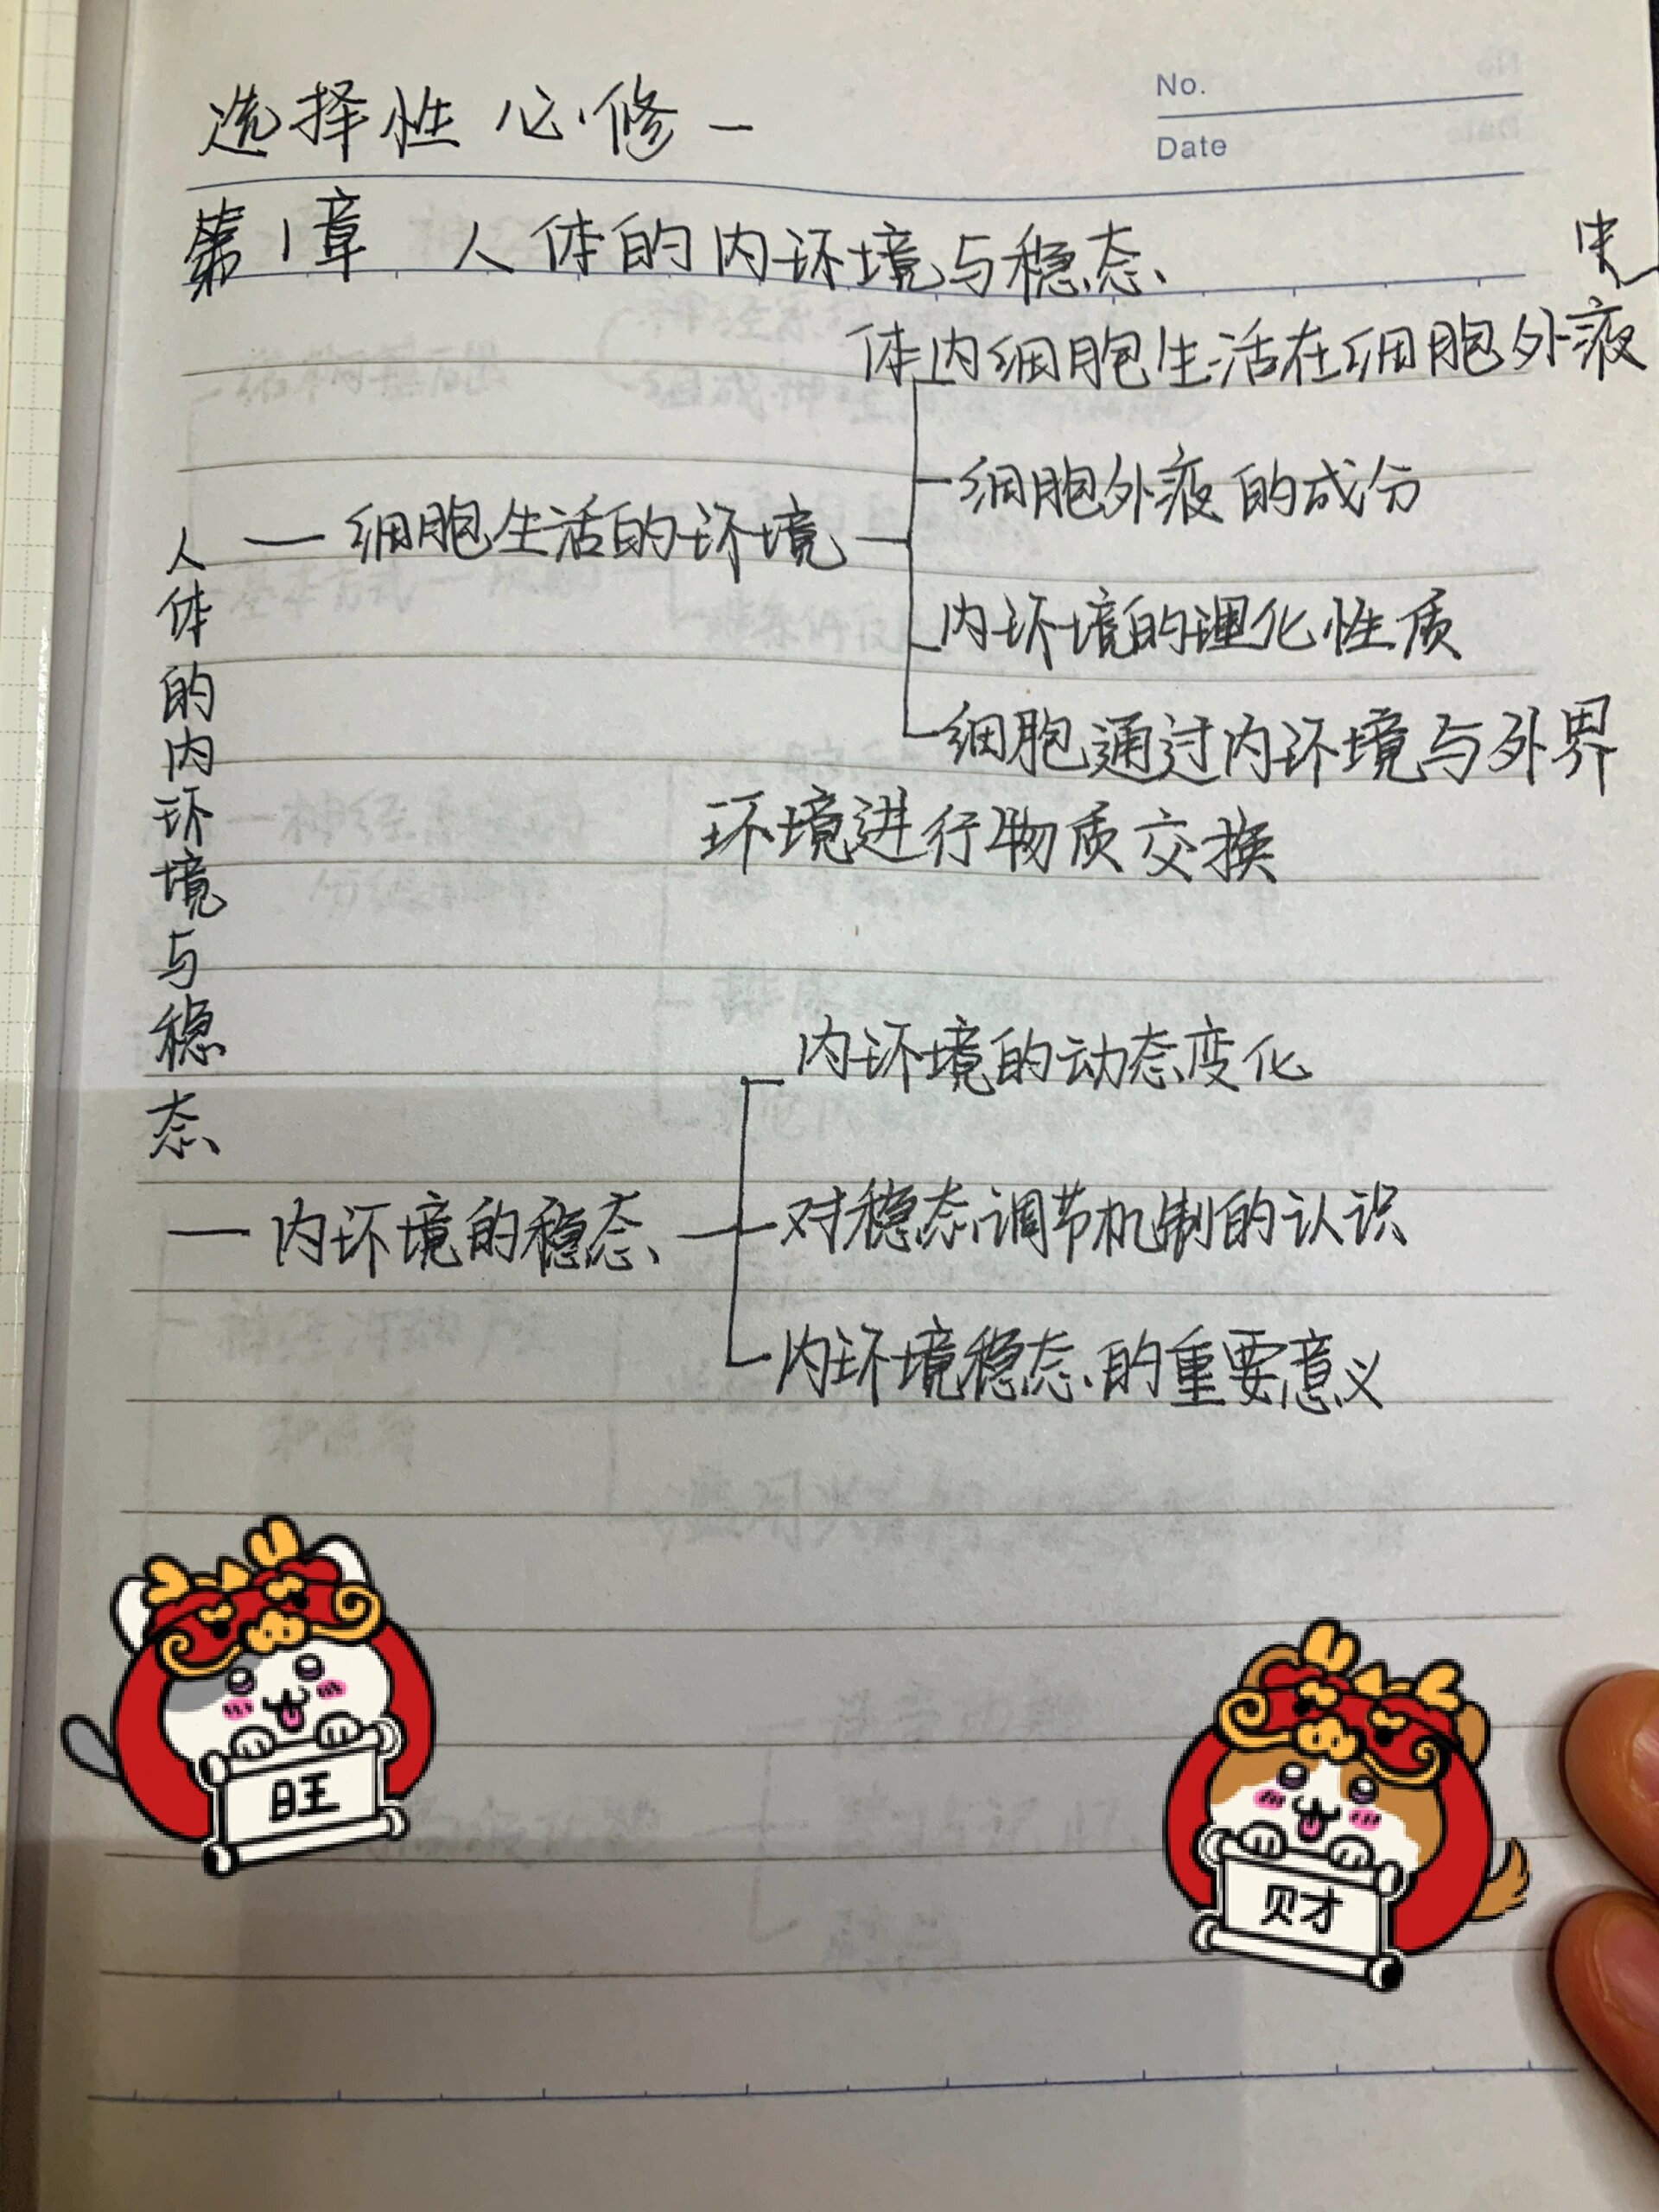 No.
选择性必修一
Date
第1章 人体的内环境与稳态
体内细胞生活在细胞外液中
细胞外液的成分
人体的内环境与稳态
细胞生活的环境
内环境的理化性质
细胞通过内环境与外界
环境进行物质交换
内环境的动态变化
内环境的稳态
对稳态调节机制的认识
内环境稳态的重要意义
旺
财